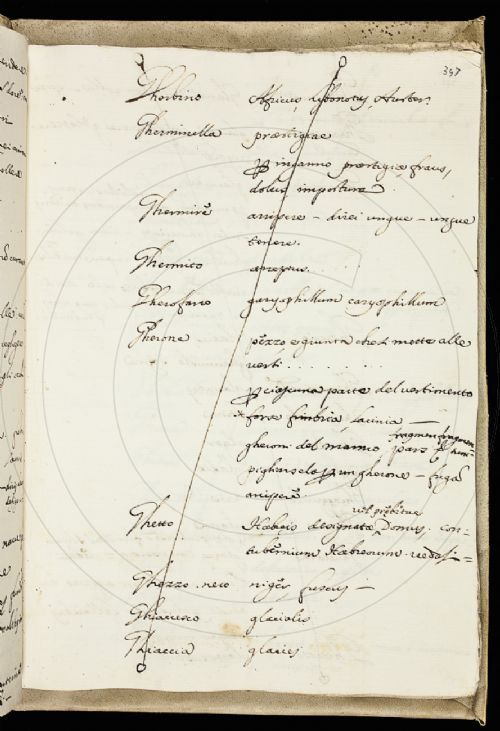 397
Gherbino Africus, Libonotus, Auster.
Gherminella præstigiae
p inganno præstigiæ, fraus,
dolus impostura
Ghermire arripere - unque - ungue
tenere.
Ghermito arreptus.
Gherofano garyophillum caryophillum
Gherone pezzo e giunta che si mette alle
vesti
p ciascuna parte del vestimento
* forse fimbria, lacinia —
gheroni del marmo, pars
pigliarsela p un gherone - fugã
arripere
vel
Ghetto Hebreis designata Domus. con-
tubernium Hæbreorum
Ghezzo. nero niger, fuscus —
Ghiacesco glacialis
Ghiaccia glacies